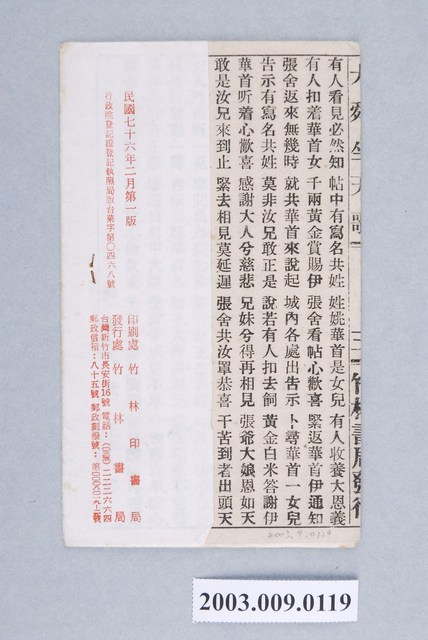 有人看見必然知 帖中有寫名共姓 姓姚華首是女兒 有人收養大恩義
有人扣着華首女 千兩黃金賞賜伊 張舍看帖心歡喜 緊返華首伊通知
張舍返來無幾時 就共華首來說起 城內各處出告示 卜尋華首一女兒
告示有寫名共姓 莫非汝兄敢正是 說若有人扣去飼 黃金白米答謝伊
華首听着心歡喜 感謝大人兮慈悲 兄妹兮得再相見 張爺大娘恩如天
敢是汝兄來到止 緊去相見莫延遲 張舍共汝罩恭喜 干苦到者出頭天
民國七十六年二月第一版
行政院登記證登記執照局版台業字第〇四六八號
印刷處 竹林印書局
發行處 竹林書局
台灣新竹市長安街16號 電話：
郵政信箱：八十五號 郵政劃撥號：
2003.9.0119
2003.009.0119